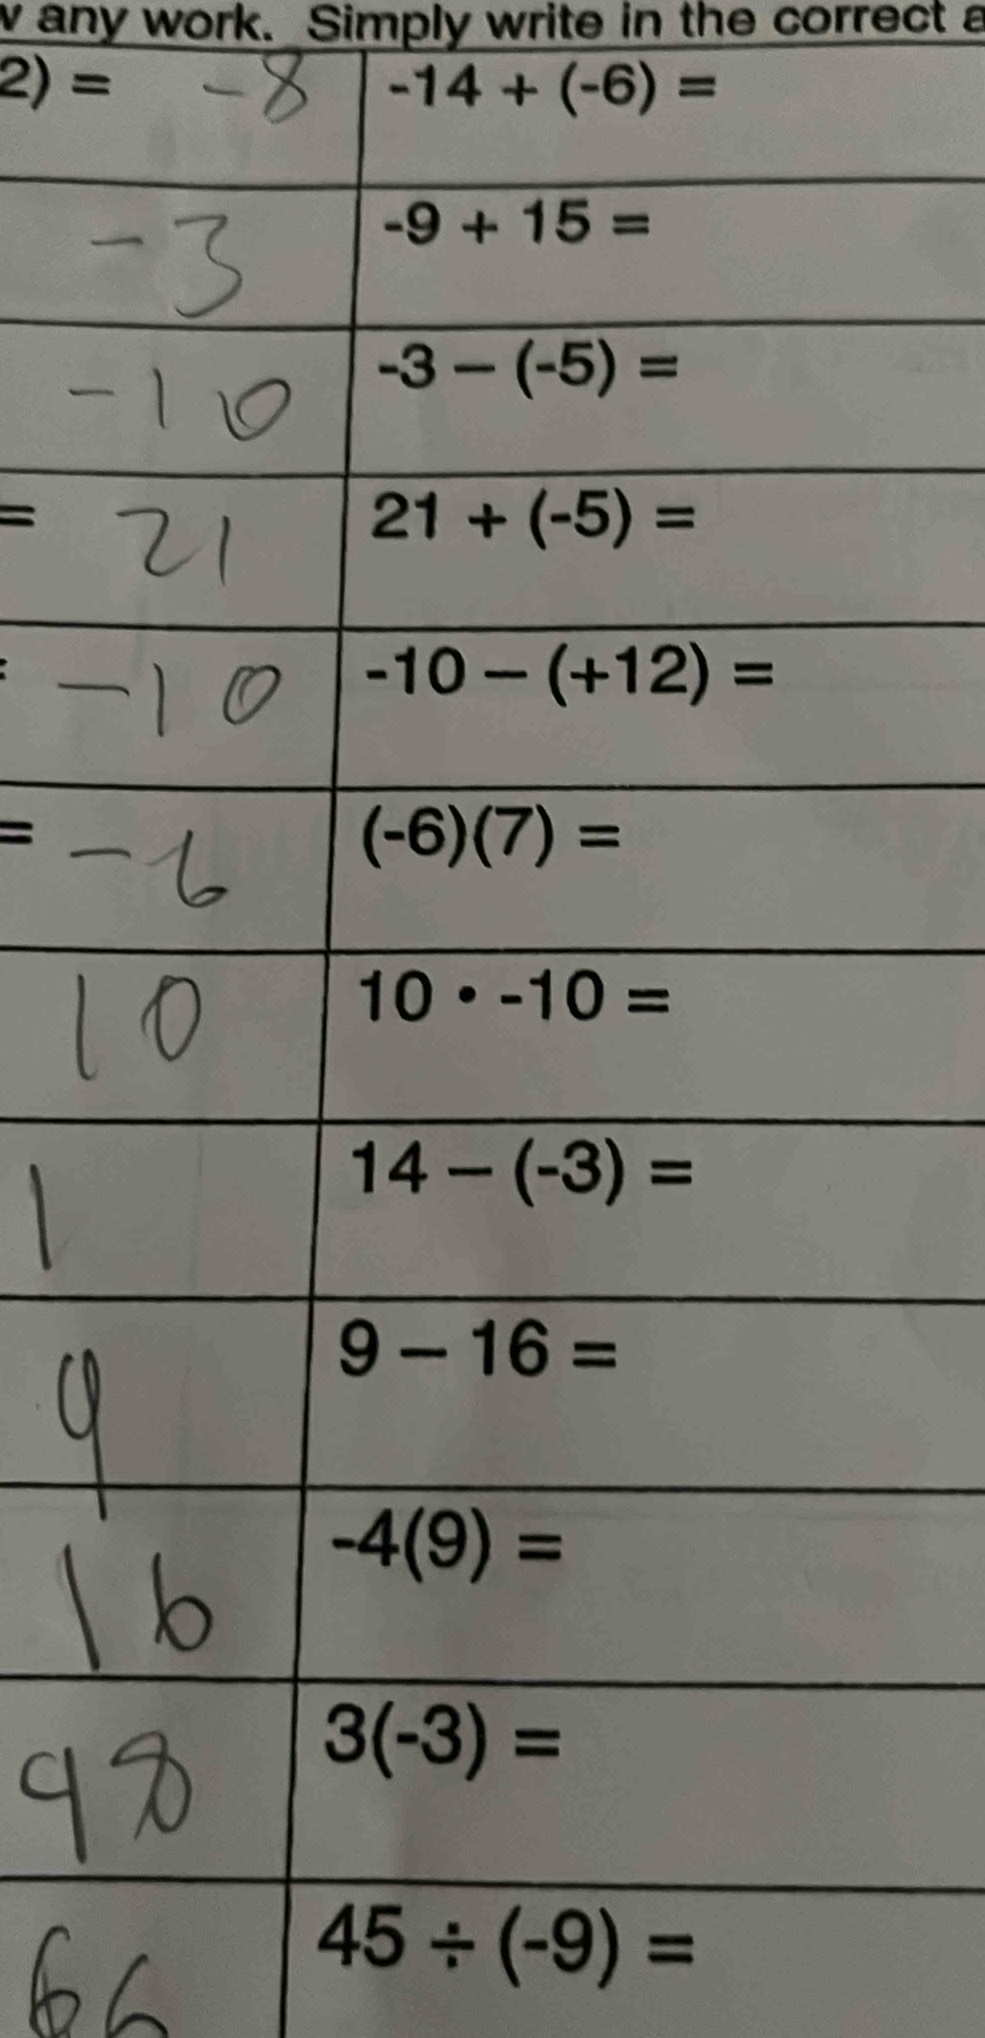 any work. Simply write in the correct
2) = -8 -14 + (-6) =
-3 -9 + 15 =
-10 -3 – (-5) =
= 21 21 + (-5) =
-10 -10 – (+12) =
= -6 (-6)(7) =
10 10 • -10 =
1 14 – (-3) =
9 9 – 16 =
16 -4(9) =
98 3(-3) =
66 45 ÷ (-9) =